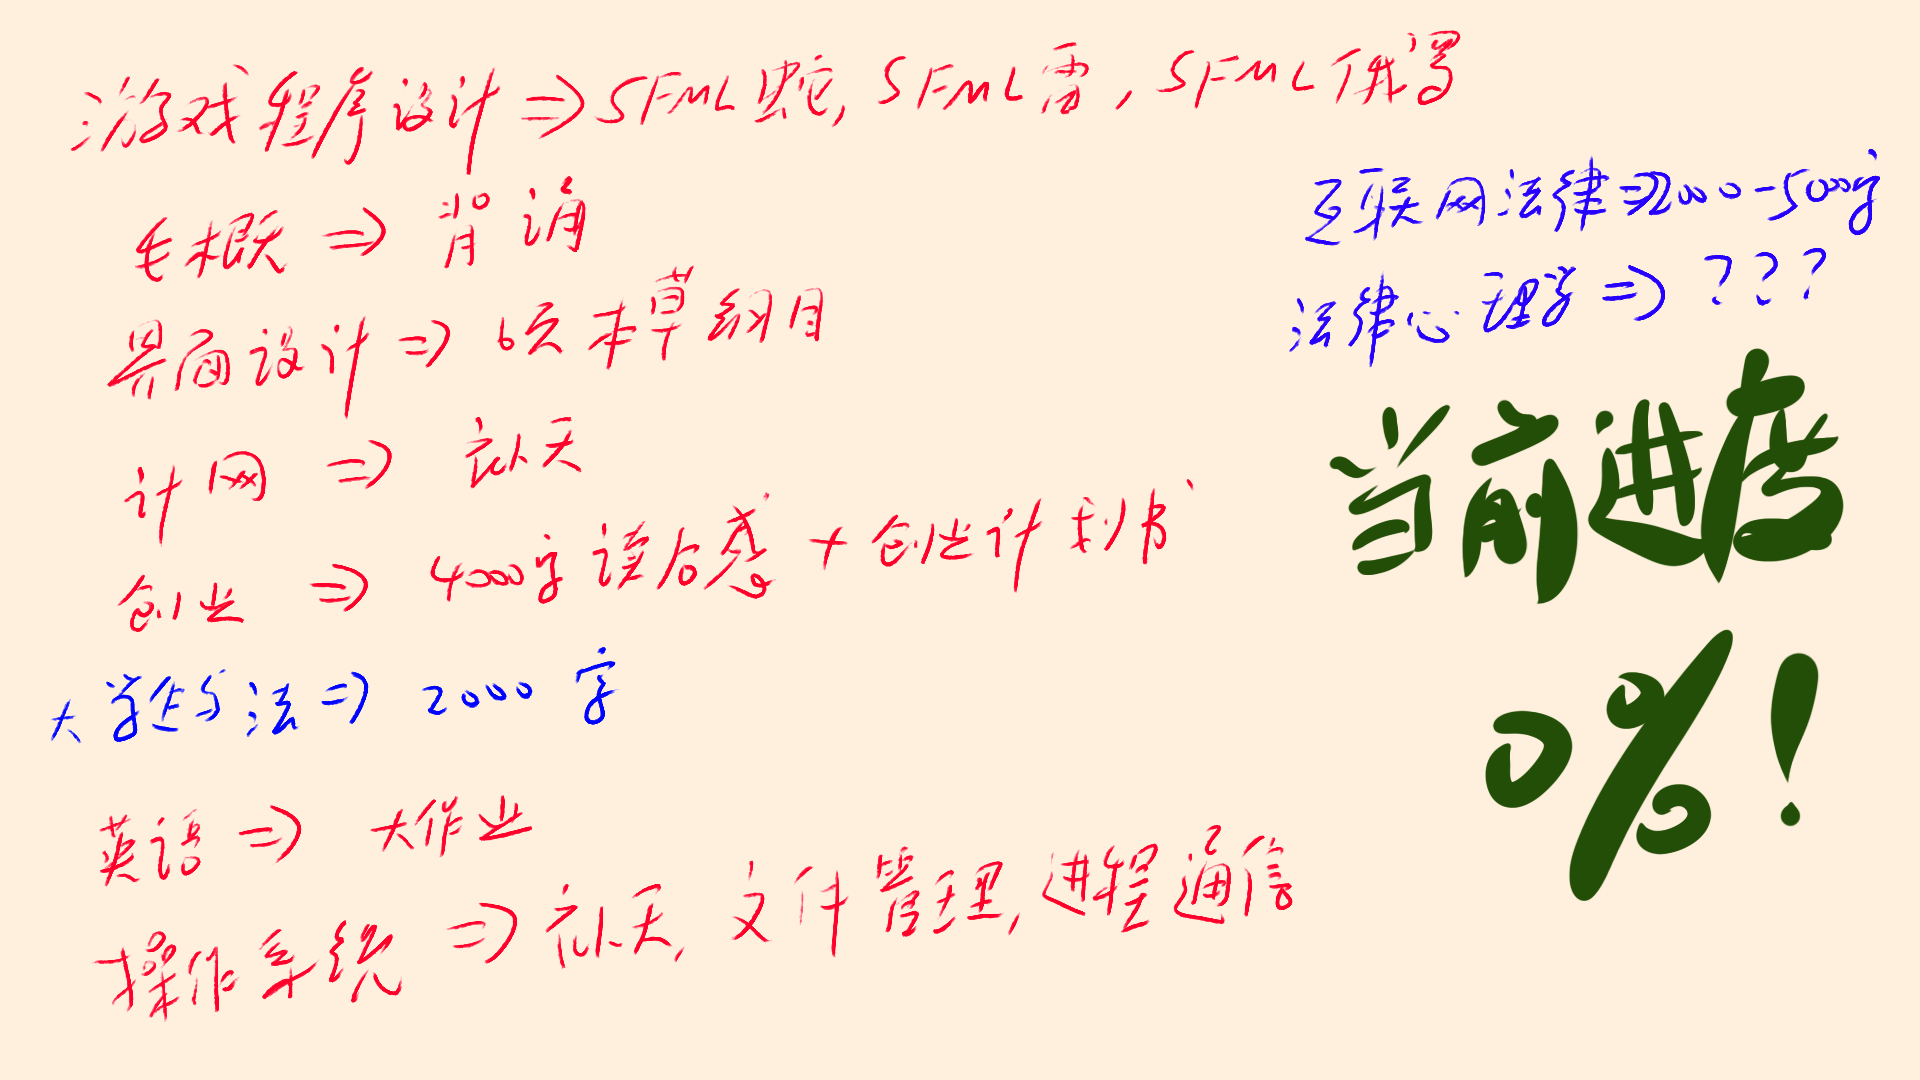 游戏程序设计⇒SFML蛇, SFML雷, SFML俄罗
毛概⇒背诵
界面设计⇒6页本草纲目
计网⇒聊天
创业⇒4000字读后感+创业计划书
大学写法⇒2000字
英语⇒大作业
操作系统⇒聊天, 文件管理, 进程通信
互联网法律⇒2000-5000字
法律心理学⇒???
当前进度
0%!